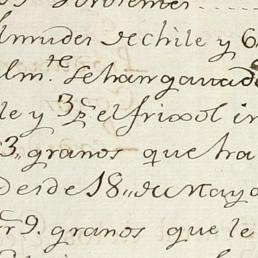 Almudes de chile y 6
Alm.te se han ganado
le y 3 p.s el frixol in
3,, granos que tra
desde 18,, de Mayo
r 9. granos que le